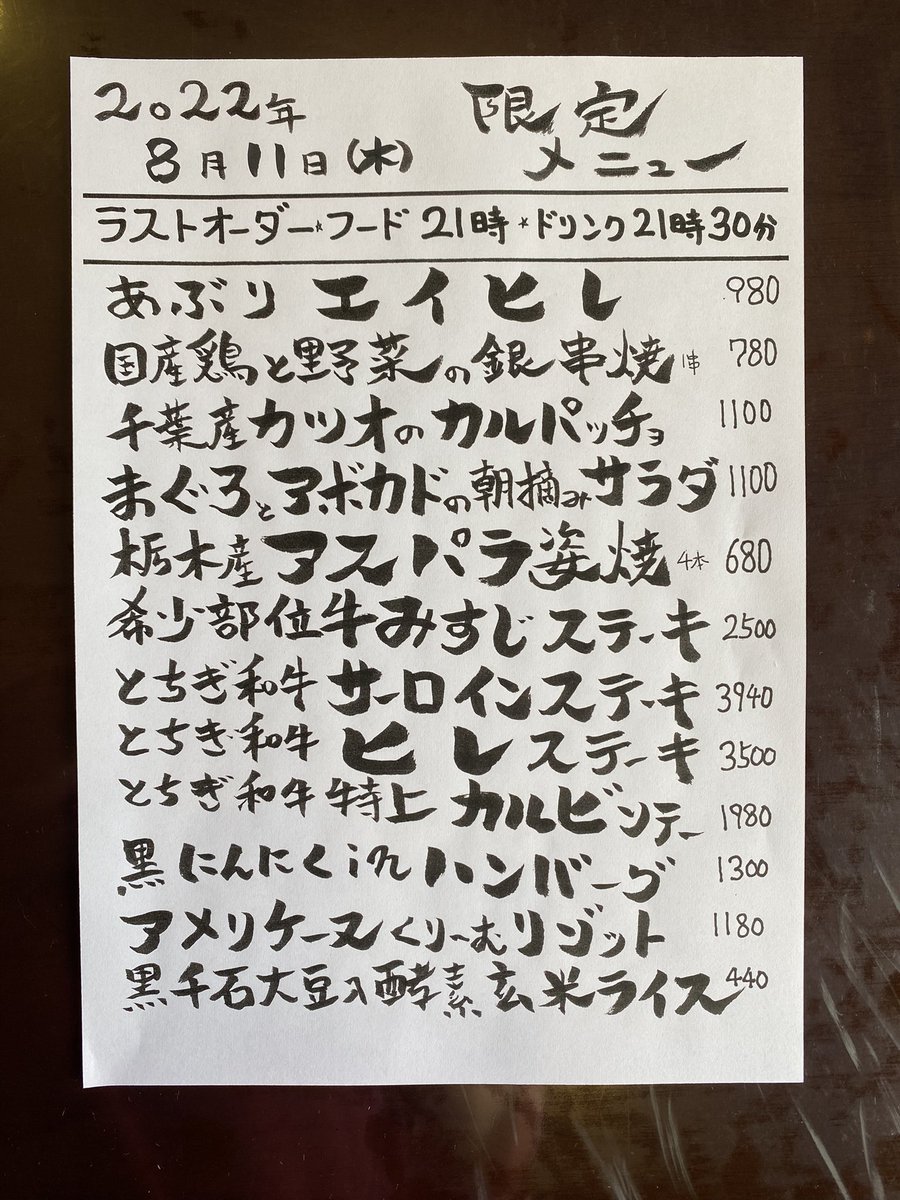 2022年 限定
8月11日(木) メニュー
ラストオーダー★フード 21時 ★ドリンク21時30分
あぶり エイヒレ 980
国産鶏と野菜の銀串焼 1串 780
千葉産カツオのカルパッチョ 1100
まぐろとアボカドの朝摘みサラダ 1100
栃木産 アスパラ姿焼 4本 680
希少部位牛みすじステーキ 2500
とちぎ和牛 サーロインステーキ 3940
とちぎ和牛 ヒレステーキ 3500
とちぎ和牛特上 カルビソテー 1980
黒にんにくinハンバーグ 1300
アメリケーヌくりーむリゾット 1180
黒千石大豆入酵素玄米ライス 440